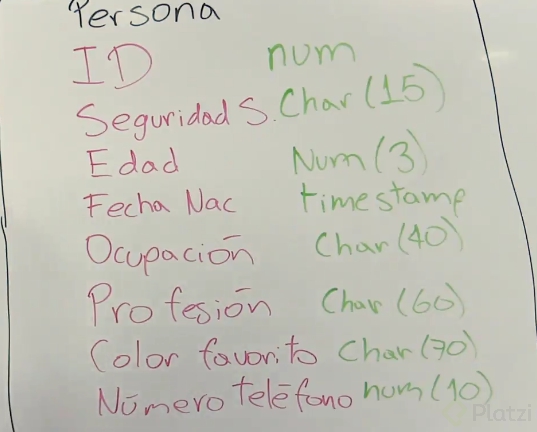 Persona
ID num
Seguridad S. Char (15)
Edad Num (3)
Fecha Nac timestamp
Ocupación Char (40)
Profesión Char (60)
Color favorito Char (70)
Número teléfono num (10)
Platzi